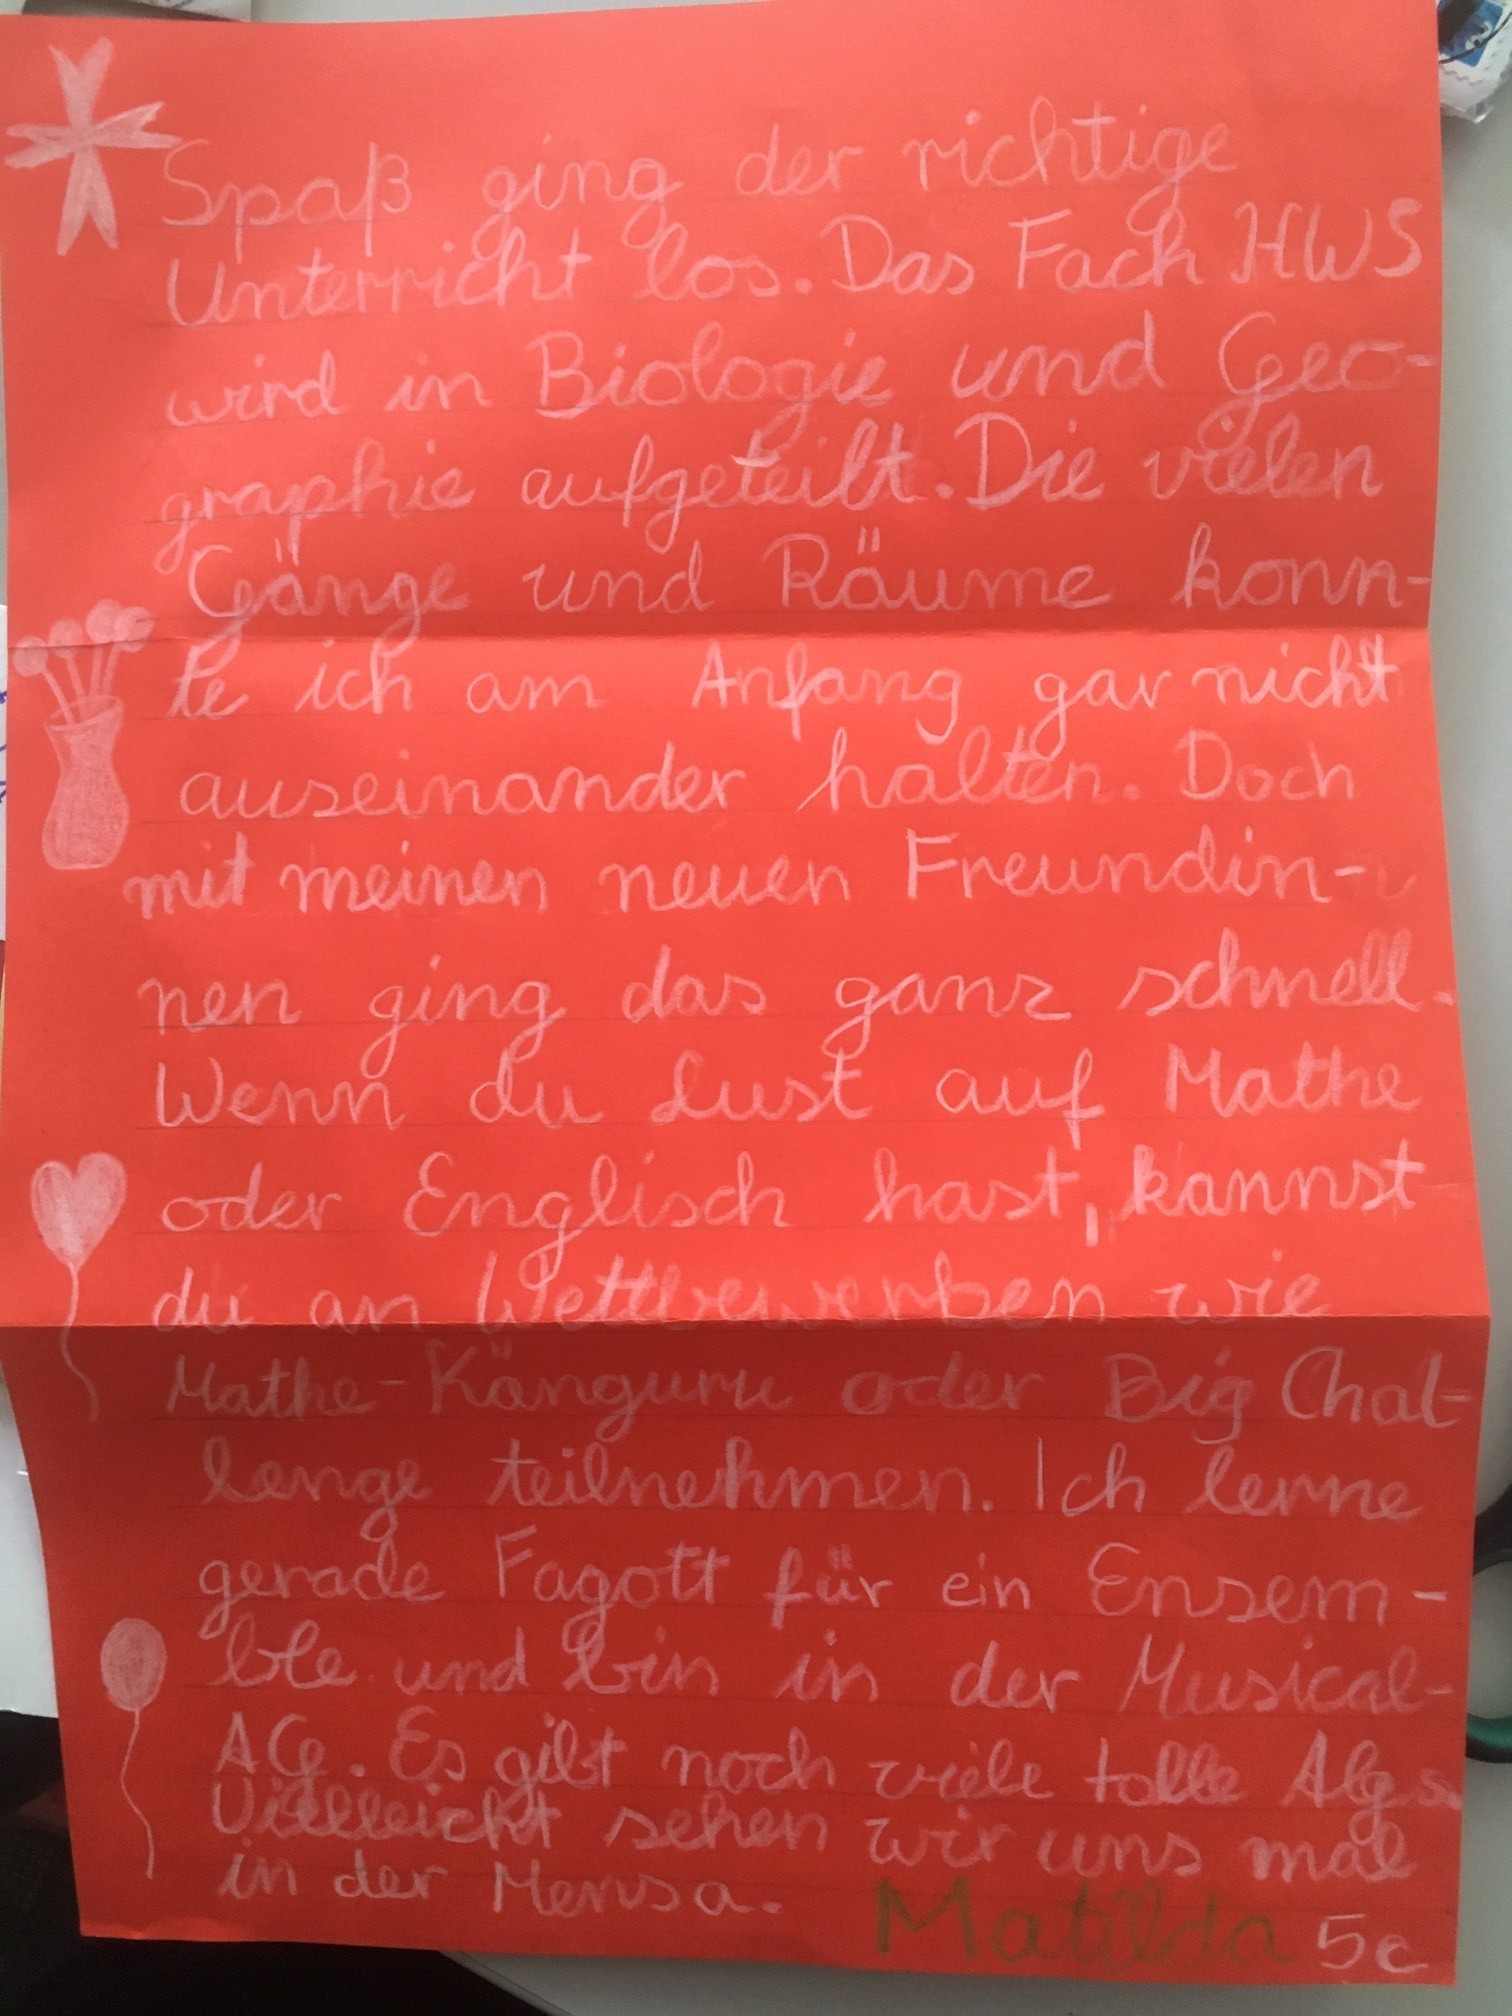 Spaß ging der richtige
Unterricht los. Das Fach HWS
wird in Biologie und Geo-
graphie aufgeteilt. Die vielen
Gänge und Räume konn-
te ich am Anfang gar nicht
auseinander halten. Doch
mit meinen neuen Freundin-
nen ging das ganz schnell.
Wenn du Lust auf Mathe
oder Englisch hast, kannst
du an Wettbewerben wie
Mathe-Känguru oder Big Chal-
lenge teilnehmen. Ich lerne
gerade Fagott für ein Ensem-
ble und bin in der Musical-
AG. Es gibt noch viele tolle AGs.
Vielleicht sehen wir uns mal
in der Mensa. Matilda 5c